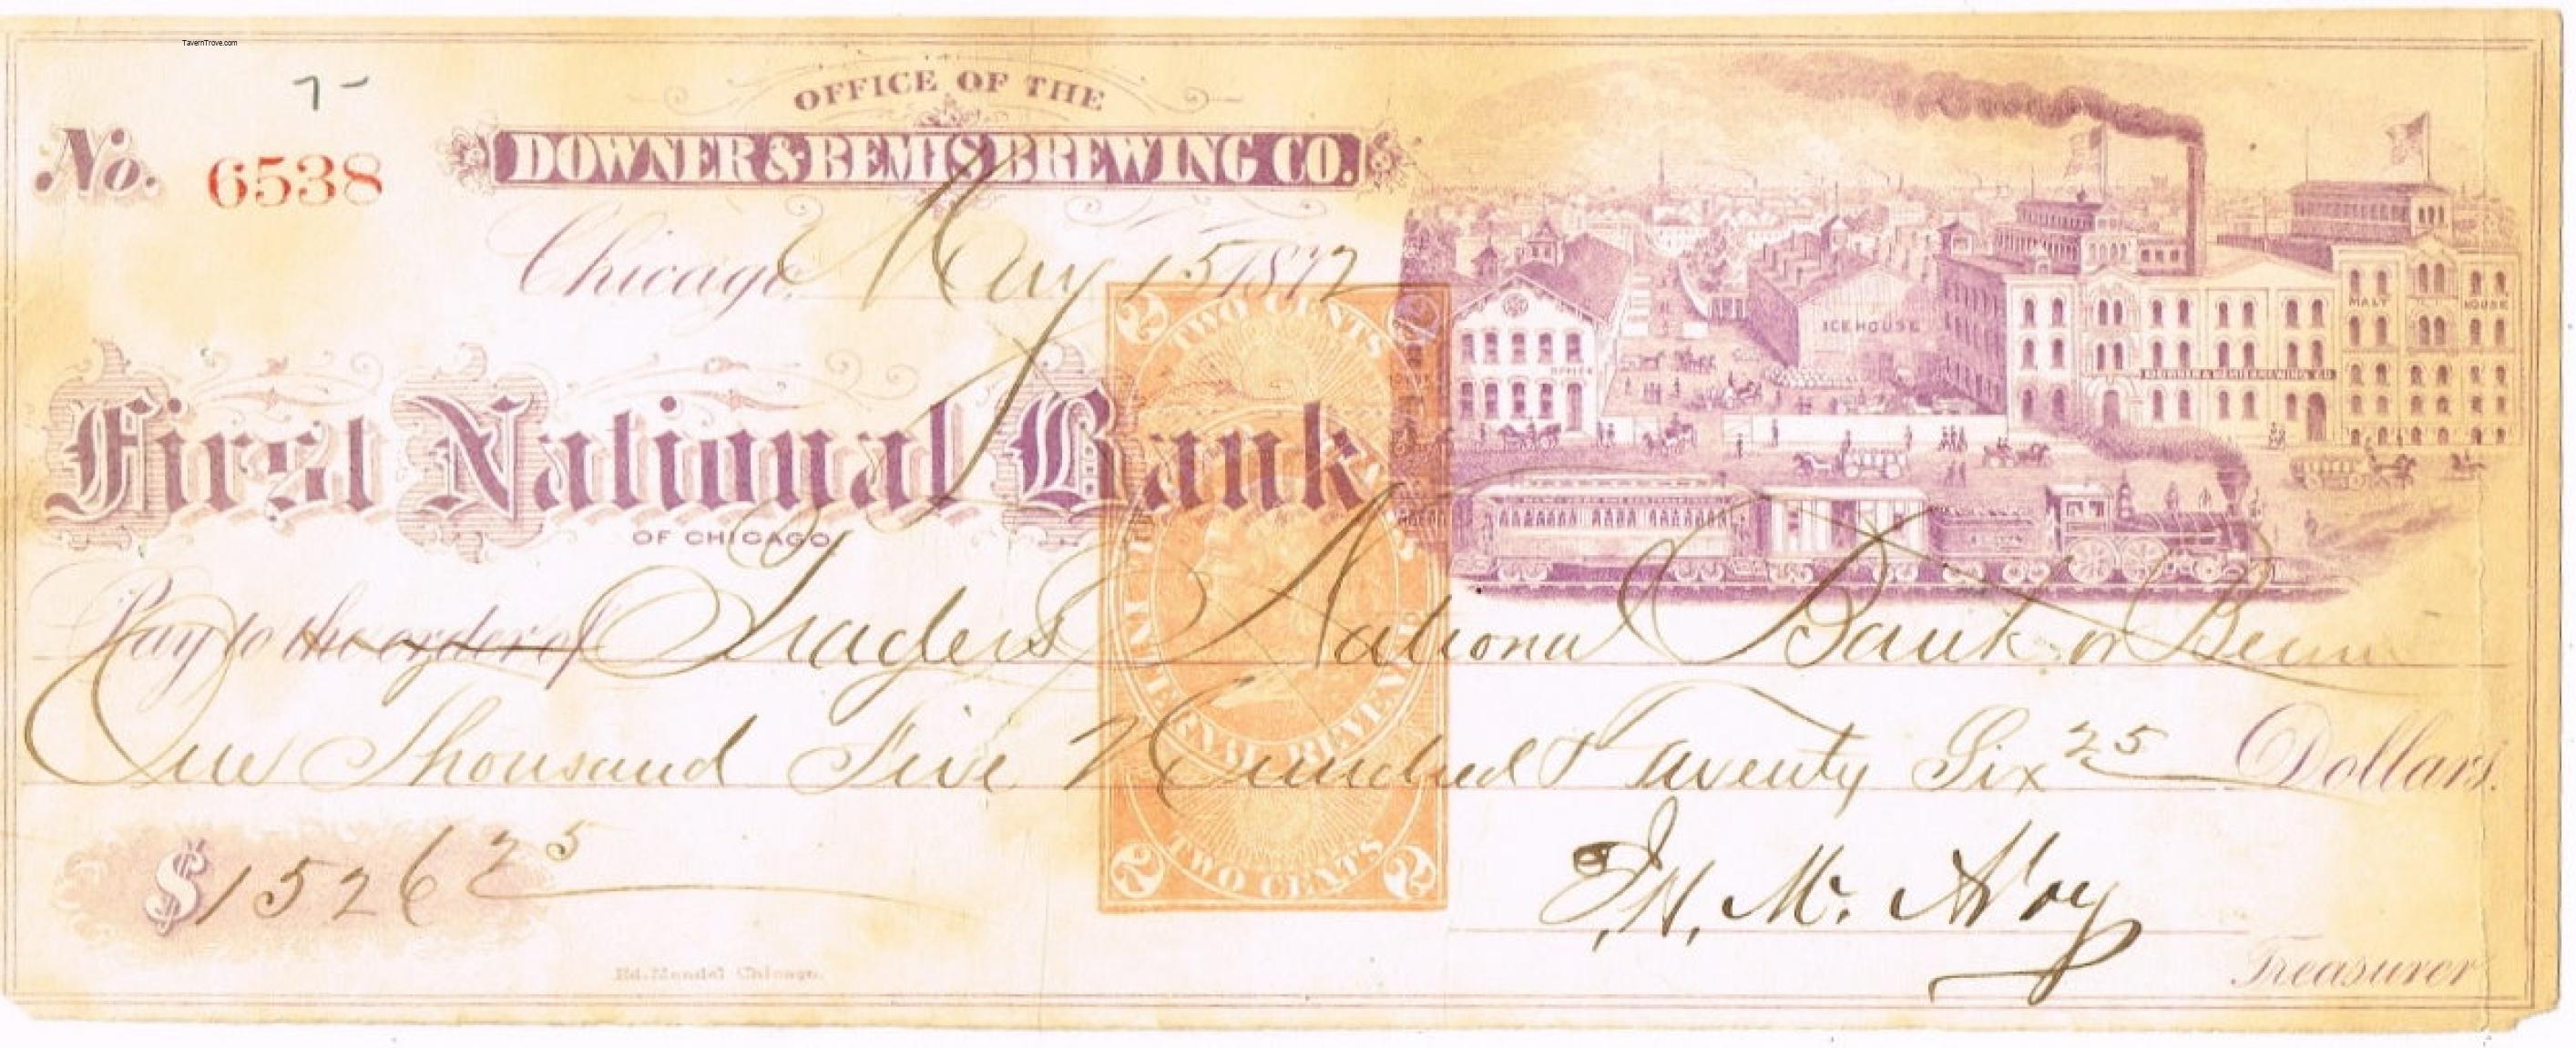 TavernTrove.com
7-
OFFICE OF THE
No. 6538
DOWNER & BEMIS BREWING CO.
Chicago, May 15 1872
First National Bank
OF CHICAGO
Pay to the order of Traders National Bank or Bearer
One Thousand Five Hundred & Twenty Six 25 Dollars.
$1526 25
Treasurer
Ed. Mendel Chicago.
2 TWO CENTS 2
INTERNAL REVENUE
2 TWO CENTS 2
ICE HOUSE
OFFICE
MALT HOUSE
DOWNER & BEMIS BREWING CO.